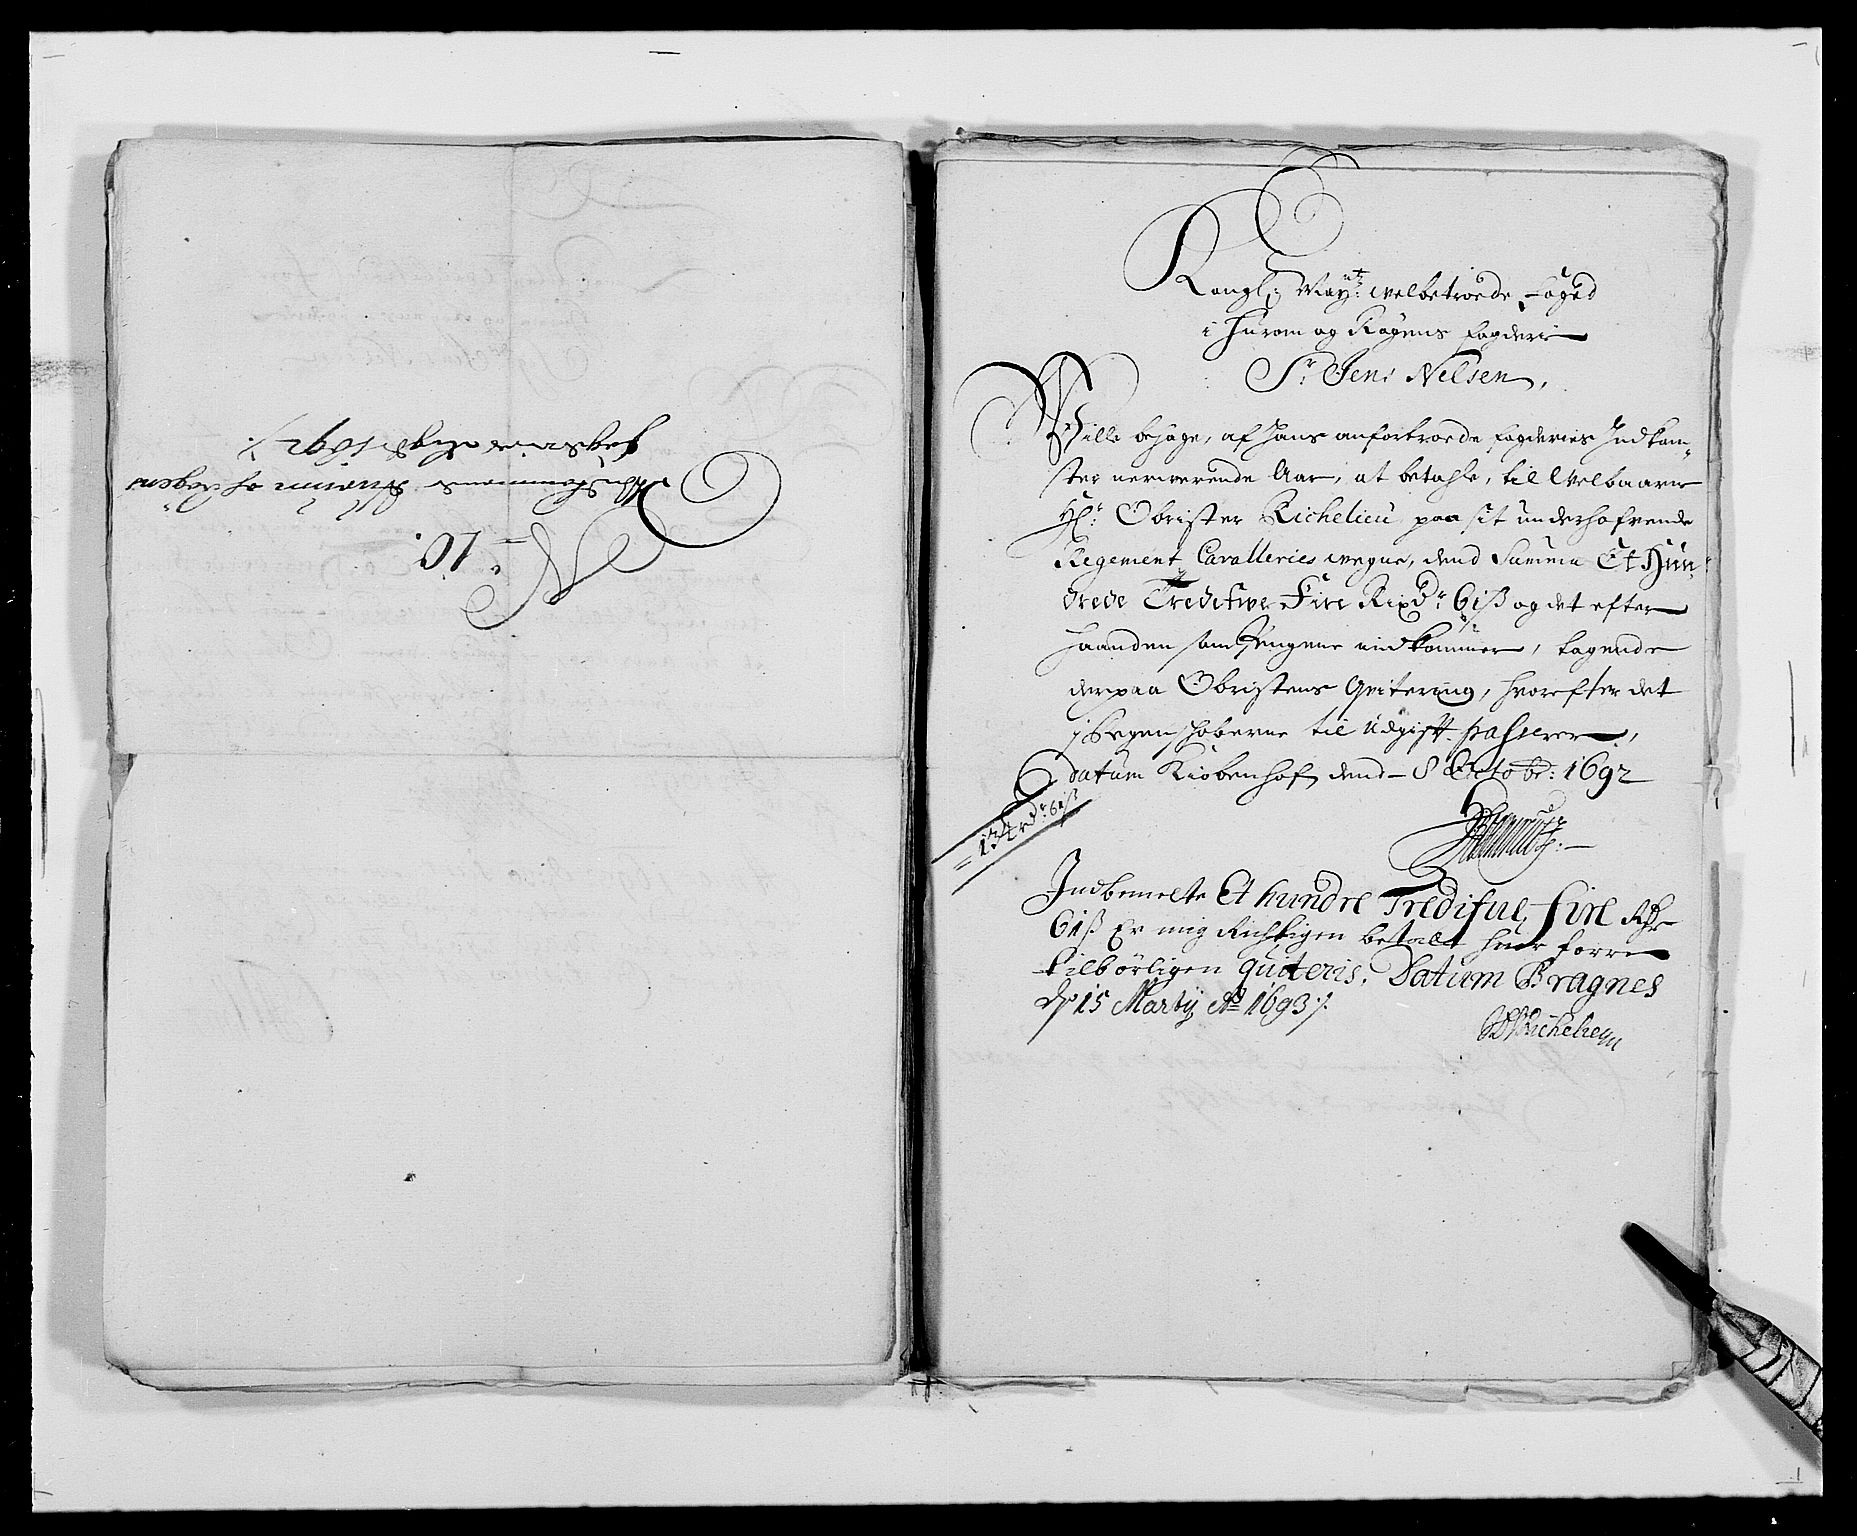 No 10.
Fogderie 1692
Kongl: May:tz welbetroede Foged
i Hurom og Røgens fogderie
Sr Jens Nelsen,
Wille behage, af hans anfortroede fogderies Indkom-
ster nerwerende Aar, at betahle, til Welbaarne
Hr: Obrister Richelieu paa sit underhafvende
Regement Cavalleries wegne, dend Summa Et Hun-
drede Tredifwe Fire Rixdr 61 ß og det efter
haanden som Pengene indkommer, tagende
derpaa Obristens Qvitering, hvorefter det
i Regenskaberne til Udgift passerer,
Datum Kiøbenhafn dend 8 Octobr: 1692
134 rdr 61 ß
Indbemelte Et hundre Tredifue, fire Rdr
61 ß Er mig Richtigen betalt huor forre
tilbørligen quiteris, Datum Bragnes
d 15 Marty Ao 1693
Richelieu